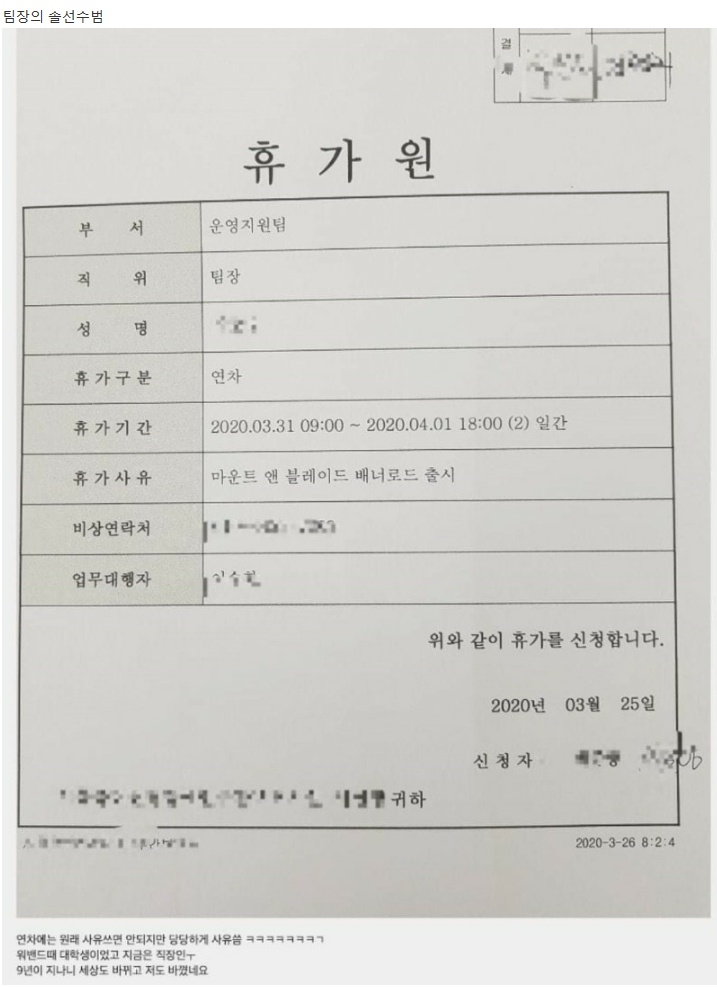 팀장의 솔선수범
결
재
휴 가 원
부 서
운영지원팀
직 위
팀장
성 명
휴 가 구 분
연차
휴 가 기 간
2020.03.31 09:00 ~ 2020.04.01 18:00 (2) 일간
휴 가 사 유
마운트 앤 블레이드 배너로드 출시
비상연락처
업무대행자
위와 같이 휴가를 신청합니다.
2020년 03월 25일
신 청 자
귀하
2020-3-26 8:2:4
연차에는 원래 사유쓰면 안되지만 당당하게 사유씀 ㅋㅋㅋㅋㅋㅋㅋㄱ
워밴드때 대학생이었고 지금은 직장인ㅜ
9년이 지나니 세상도 바뀌고 저도 바꼈네요